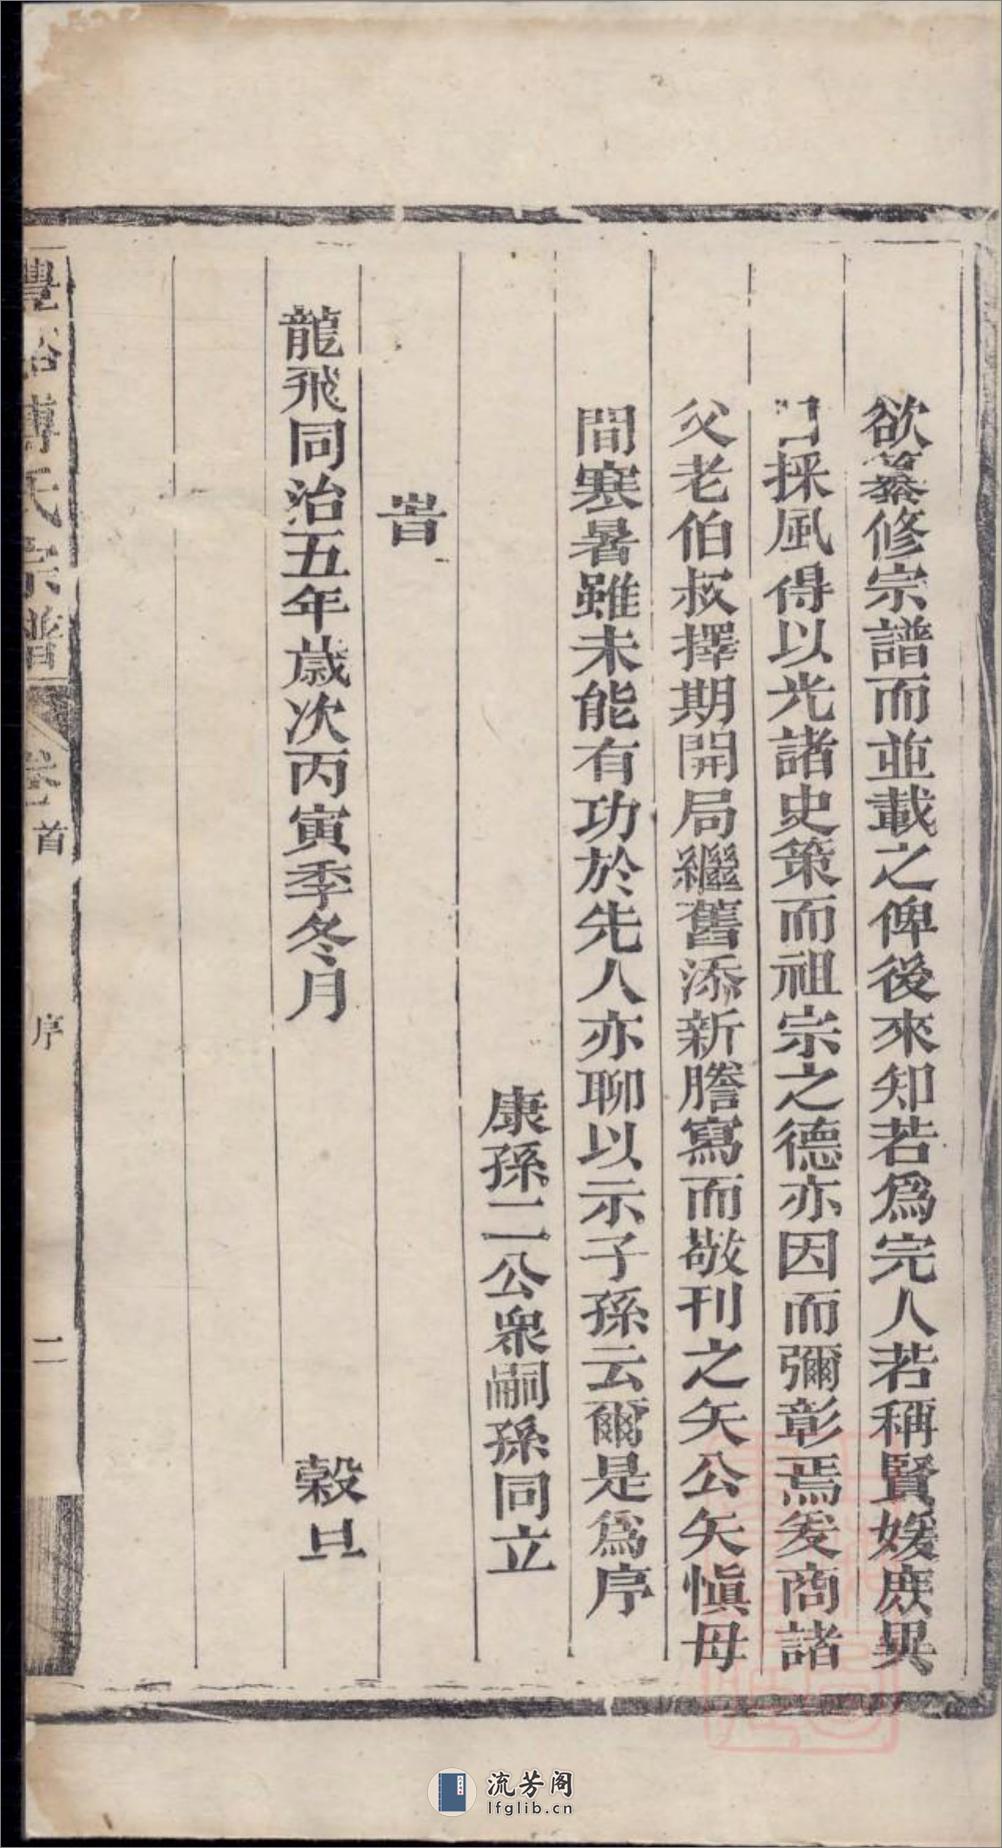 欲纂修宗譜而並載之俾後來知若爲完人若稱賢媛庶異
日採風得以光諸史策而祖宗之德亦因而彌彰焉爰商諸
父老伯叔擇期開局繼舊添新謄寫而敬刊之矢公矢愼毋
間寒暑雖未能有功於先人亦聊以示子孫云爾是爲序
康孫二公衆嗣孫同立
旹
龍飛同治五年歲次丙寅季冬月 穀旦
豐谿傅氏宗譜 卷首 序 二
流芳阁
lfglib.cn